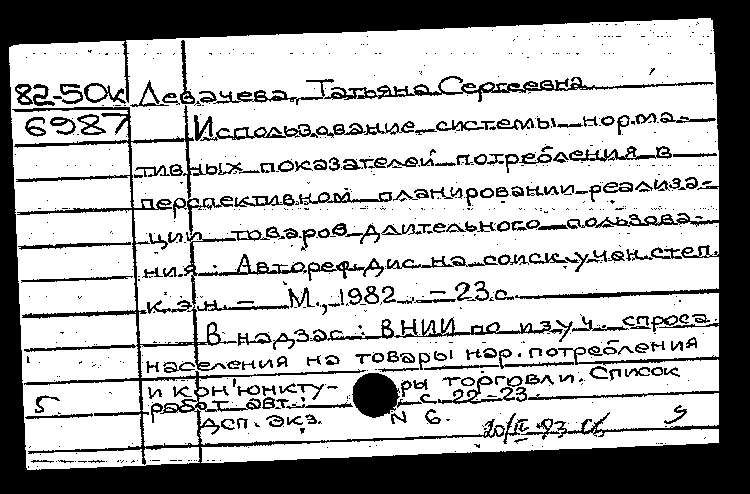 82-50к Левачева, Татьяна Сергеевна
6987 Использование системы норма-
тивных показателей потребления в
перспективном планировании реализа-
ции товаров длительного пользова-
ния: Автореф. дис на соиск. учен. степ.
к.э.н. – М., 1982. – 23 с.
В надзаг.: ВНИИ по изуч. спроса
населения на товары нар. потребления
и кон'юнкту- ры торговли. Список
5 работ авт.: с. 22-23.
Дсп. экз. N 6.